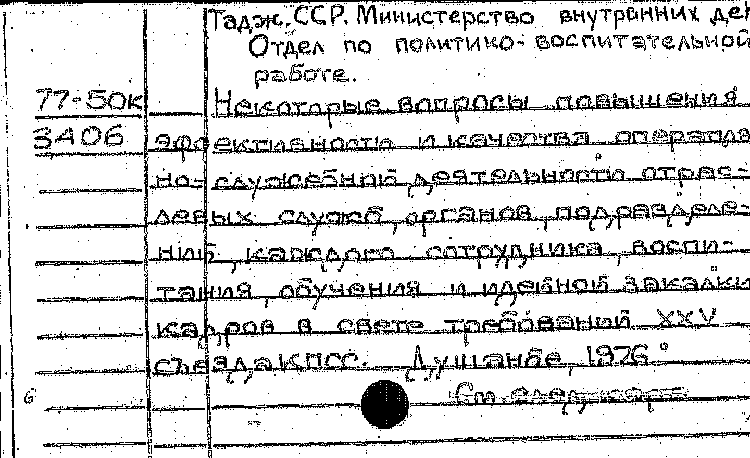 Тадж. ССР. Министерство внутринних дел
Отдел по политико-воспитательной
работе.
77-50к Некоторые вопросы повышения
3406 эффективности и качества оператив
но-служебной деятельности отрас-
левых служб, органов, подразделе-
ний, каждого сотрудника, воспи-
тания, обучения и идейной закалки
кадров в свете требований XXV
съезда КПСС. Душанбе, 1976.
6 См. след. карт